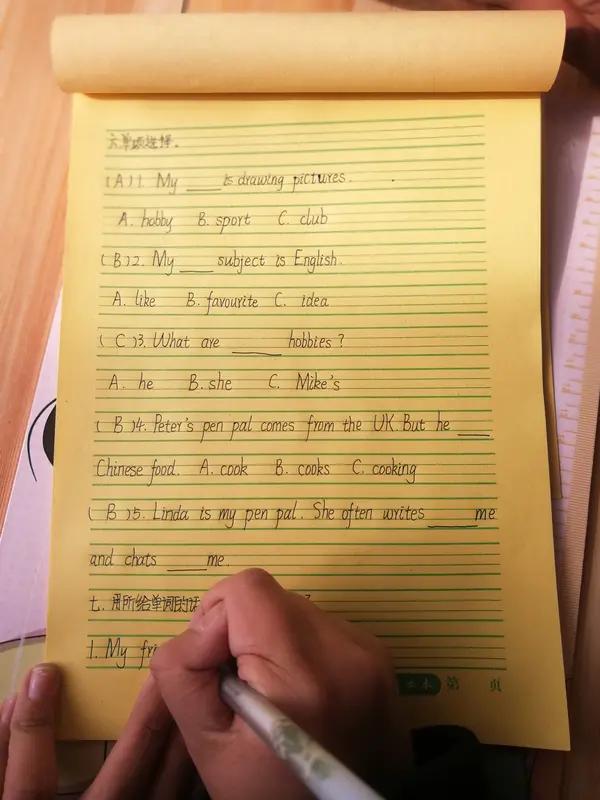 六.单项选择.
(A)1. My ____ is drawing pictures.
A. hobby B. sport C. club
(B)2. My ____ subject is English.
A. like B. favourite C. idea
(C)3. What are ____ hobbies?
A. he B. she C. Mike's
(B)4. Peter's pen pal comes from the UK. But he ____
Chinese food. A. cook B. cooks C. cooking
(B)5. Linda is my pen pal. She often writes ____ me
and chats ____ me.
七. 用所给单词的
1. My
第 页